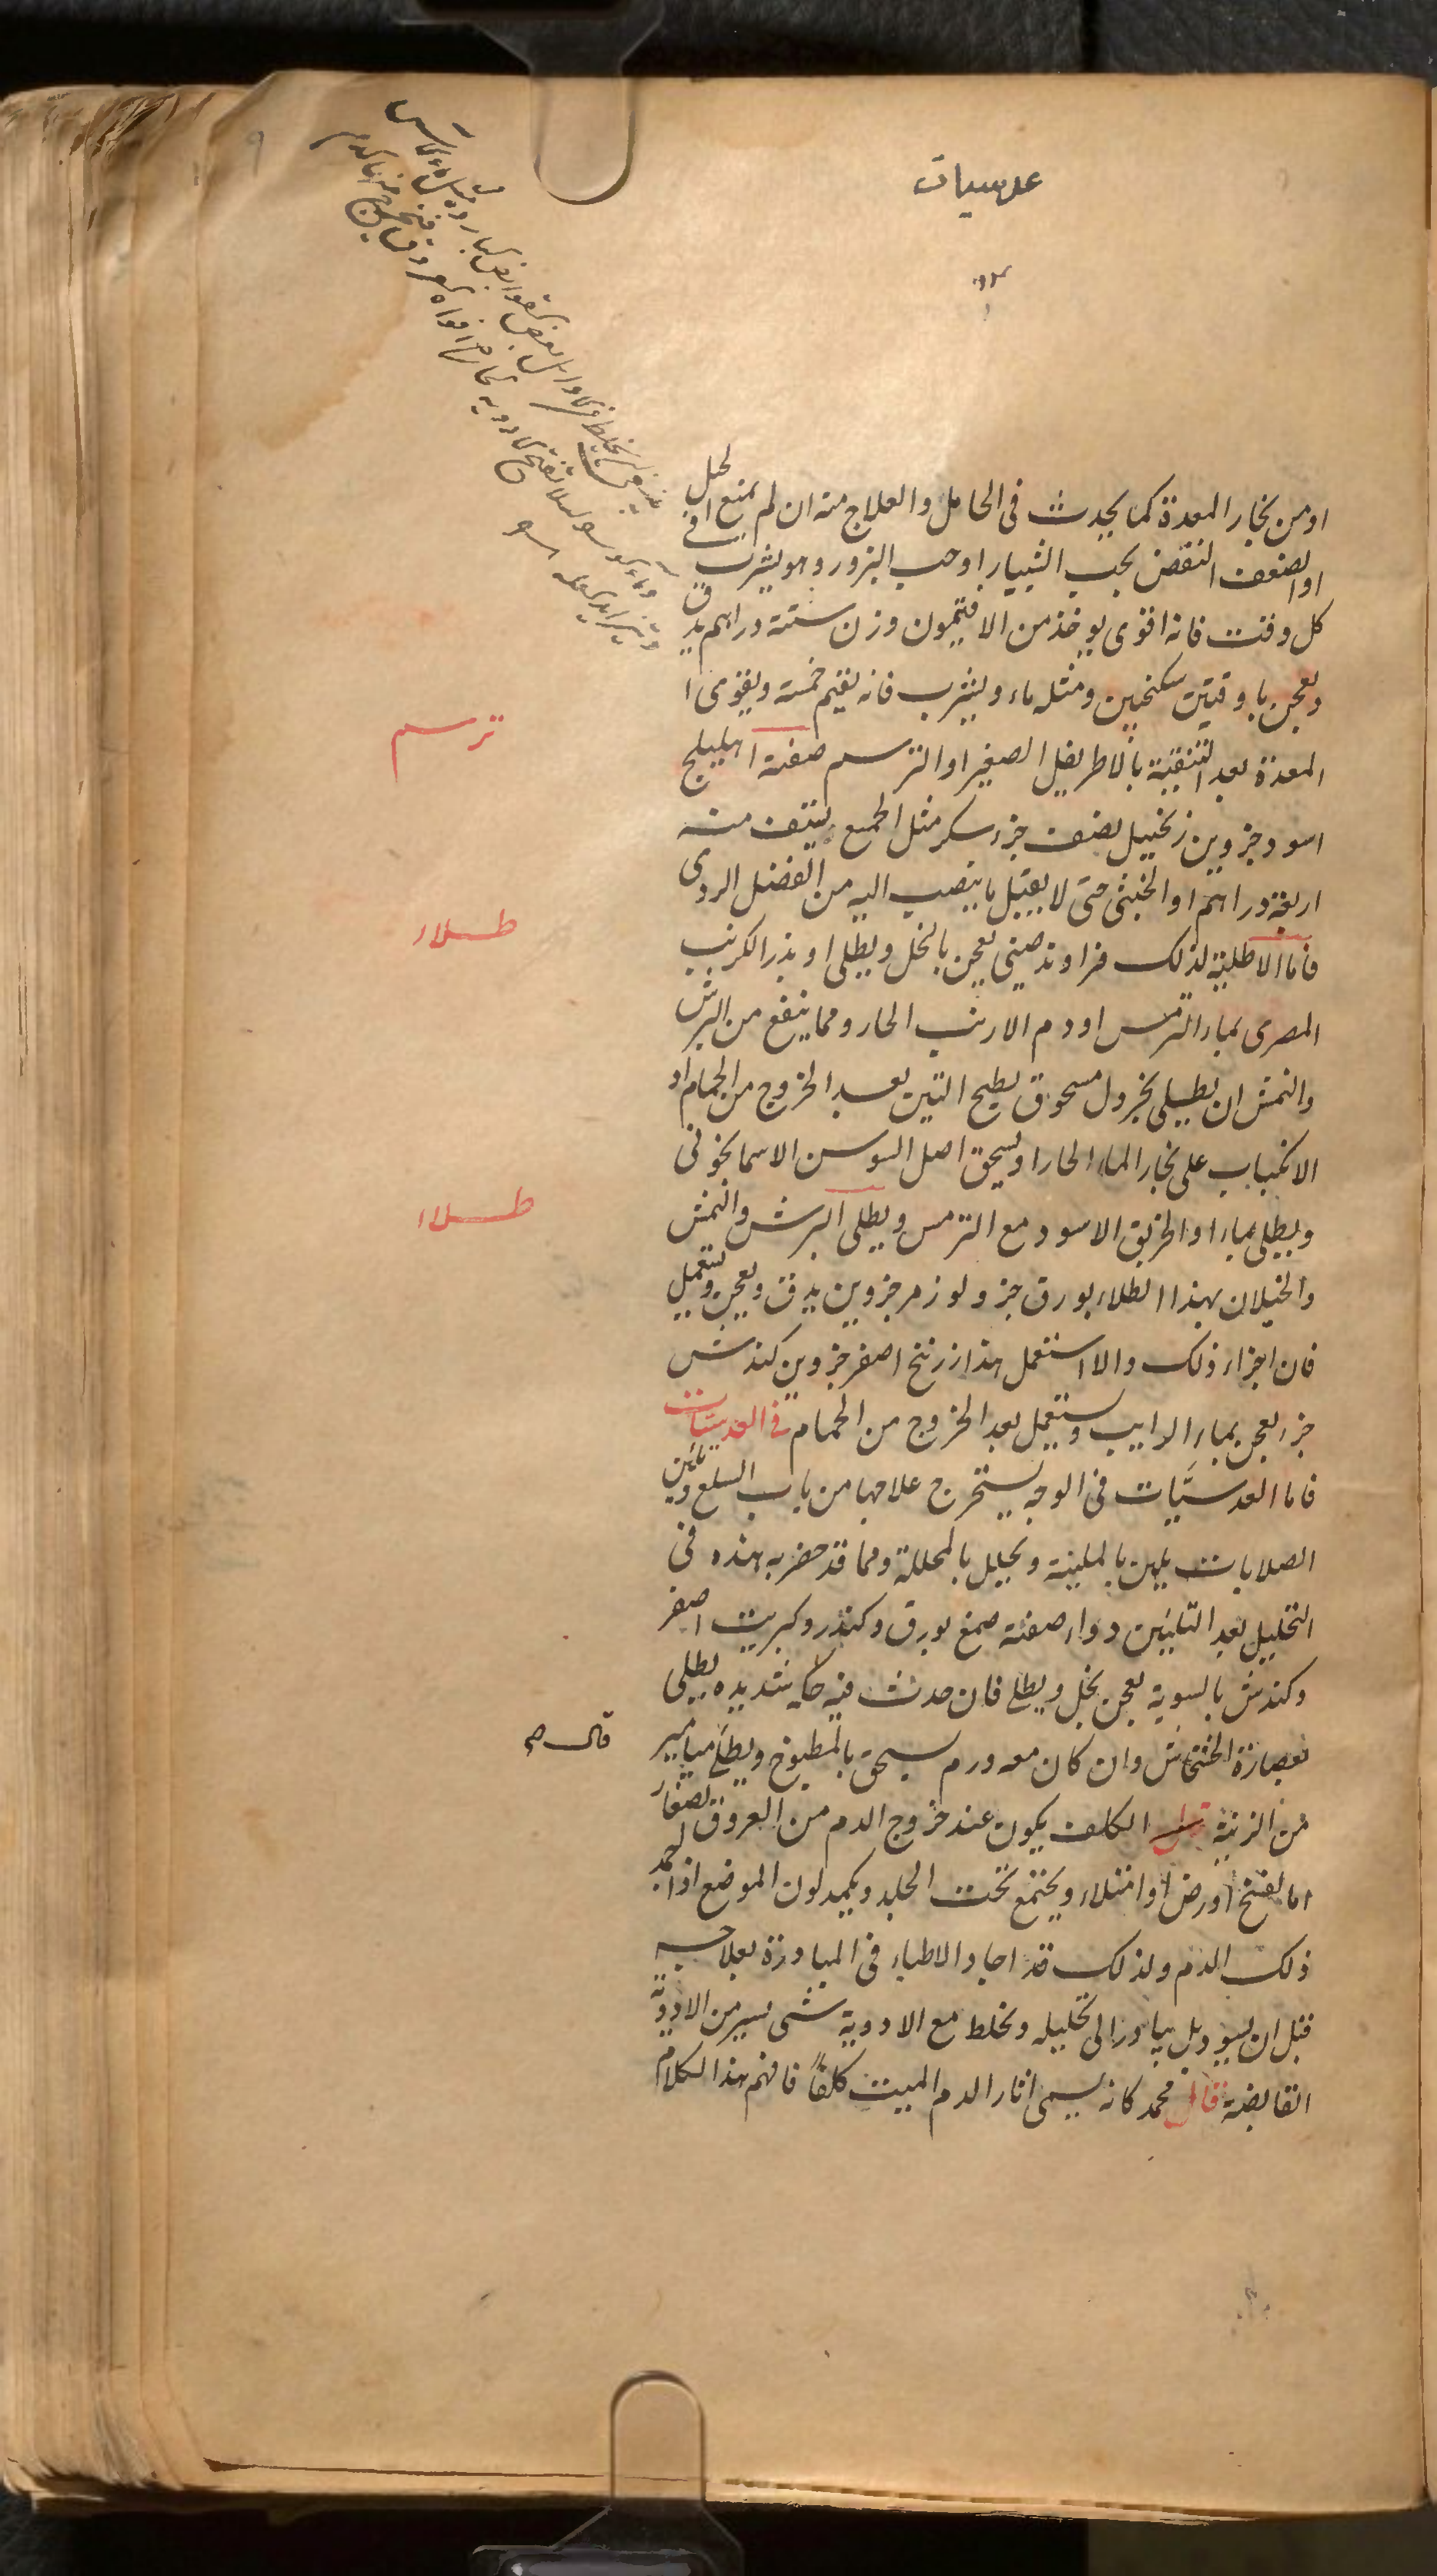 عدسيات
او من بخار المعدة كما يحدث فى الحامل والعلاج منه ان لم يمنع الحبل
او الضعف النقض بحب الشبيار او حب البزور وهو يشرب فى
كل وقت فانه اقوى يوخذ من الافتيمون وزن ستة دراهم يدق
ويعجن باوقيتين سكنجبين ومثله ماء ويشرب فانه يقيم خمسة ويقوى
المعدة بعد التنقية بالاطريفل الصغير او الترسم صفته اهليلج
ترسم
اسود جزوين زنجبيل نصف جزء سكر مثل الجميع يستف منه
اربعة دراهم او الخبثى حتى لا يقبل ما ينصب اليه من الفضل الردى
فاما الاطلية لذلك فراوند صينى يعجن بالخل ويطلى او بزر الكرنب
طلاء
المصرى بماء الترمس او دم الارنب الحار ومما ينفع من البرش
والنمش ان يطلى بخردل مسحوق بطبيخ التين بعد الخروج من الحمام او
الانكباب على بخار الماء الحار او يسحق اصل السوسن الاسمانجونى
ويطلى بماء او الخربق الاسود مع الترمس ويطلى البرش والنمش
طلاء
والخيلان بهذا الطلاء بورق جز ولوز مر جزوين يدق ويعجن ويستعمل
فان اجزاء ذلك والا استعمل هذا زرنيخ اصفر جزوين كندش
جزء يعجن بماء الراييب ويستعمل بعد الخروج من الحمام فى العدسيات
فاما العدسيات فى الوجه يستخرج علاجها من باب السلع وتليين
الصلابات يلين بالملينة ويحلل بالمحللة ومما قد حضر به هذه فى
التحليل بعد التليين دواء صفته صمغ بورق وكندر وكبريت اصفر
وكندش بالسوية يعجن بخل ويطلى فان حدث فيه حكه شديده يطلى
بعصارة الخشخاش وان كان معه ورم يسحق بالمطبوخ ويطلى ميامير
قال ج
من الزينة الكلف يكون عند خروج الدم من العروق الصغار
اما لفتح او رض او امتلاء ويجتمع تحت الجلد ويكمد لون الموضع اذا جمد
ذلك الدم ولذلك قد اجاد الاطباء فى المبادرة بعلاجه
قبل ان يسود بل يبادر الى تحليله ويخلط مع الادوية شى يسير من الادوية
القابضة قال محمد كانه يسمى اثار الدم الميت كلفا فافهم هذا الكلام